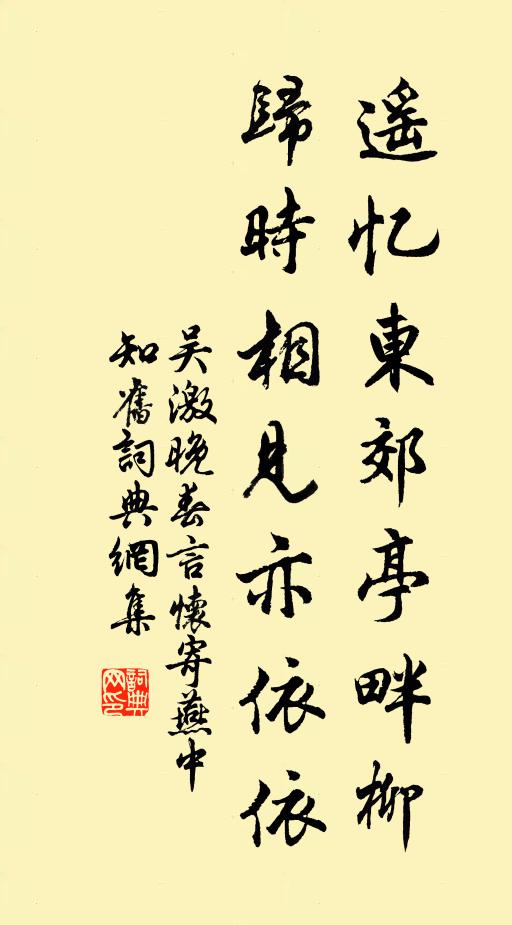 遥忆東郊亭畔柳
歸時相見亦依依
吴激晚春言懷寄燕中
知舊詞典網集
詞典
网印